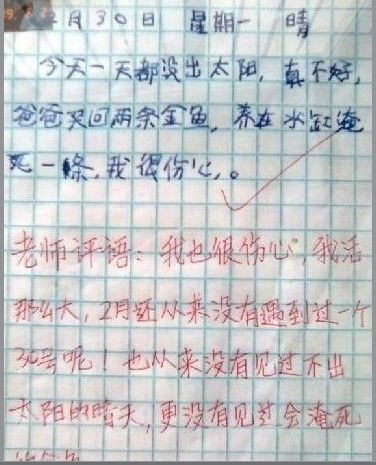 2月30日 星期一 晴
今天一天都没出太阳，真不好，
爸爸买回两条金鱼，养在水缸淹
死一條，我很伤心。
老师评语：我也很伤心，我活
那么大，2月还从来没有遇到过一个
30号呢！也从来没有见过不出
太阳的晴天，更没有见过会淹死